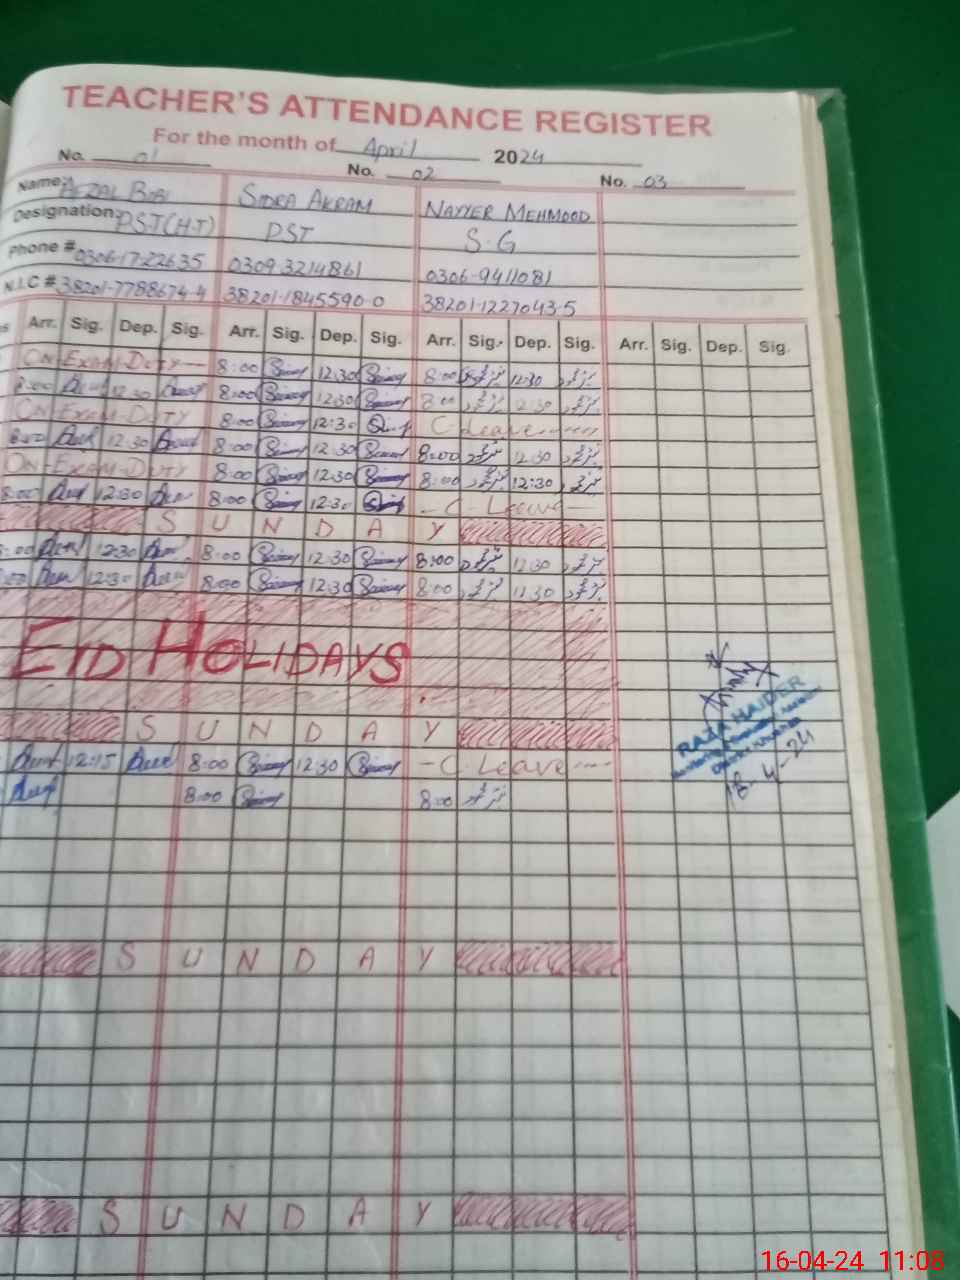 TEACHER'S ATTENDANCE REGISTER
For the month of April 2024
No. 01 No. 02 No. 03
Name: AFZAL BIBI SIDRA AKRAM NAYYER MEHMOOD
Designation: PST(H.T) PST S.G
Phone # 0306-1722635 0309 3214861 0306-9411081
N.I.C # 38201-7788674-4 38201-1845590-0 38201-1227043-5
Arr. Sig. Dep. Sig. Arr. Sig. Dep. Sig. Arr. Sig. Dep. Sig. Arr. Sig. Dep. Sig.
ON-EXAM-DUTY 8:00 12:30 8:00 12:30
8:00 12:30 8:00 12:30 8:00 12:30
ON-EXAM-DUTY 8:00 12:30 C-Leave
8:00 12:30 8:00 12:30 8:00 12:30
ON-EXAM-DUTY 8:00 12:30 8:00 12:30
8:00 12:30 8:00 12:30 C-Leave
SUNDAY
8:00 12:30 8:00 12:30 8:00 12:30
8:00 12:30 8:00 12:30 8:00 12:30
EID HOLIDAYS
SUNDAY
12:15 8:00 12:30 C-Leave
8:00 8:00
RAJA HAIDER
SUNDAY
SUNDAY
16-04-24 11:08